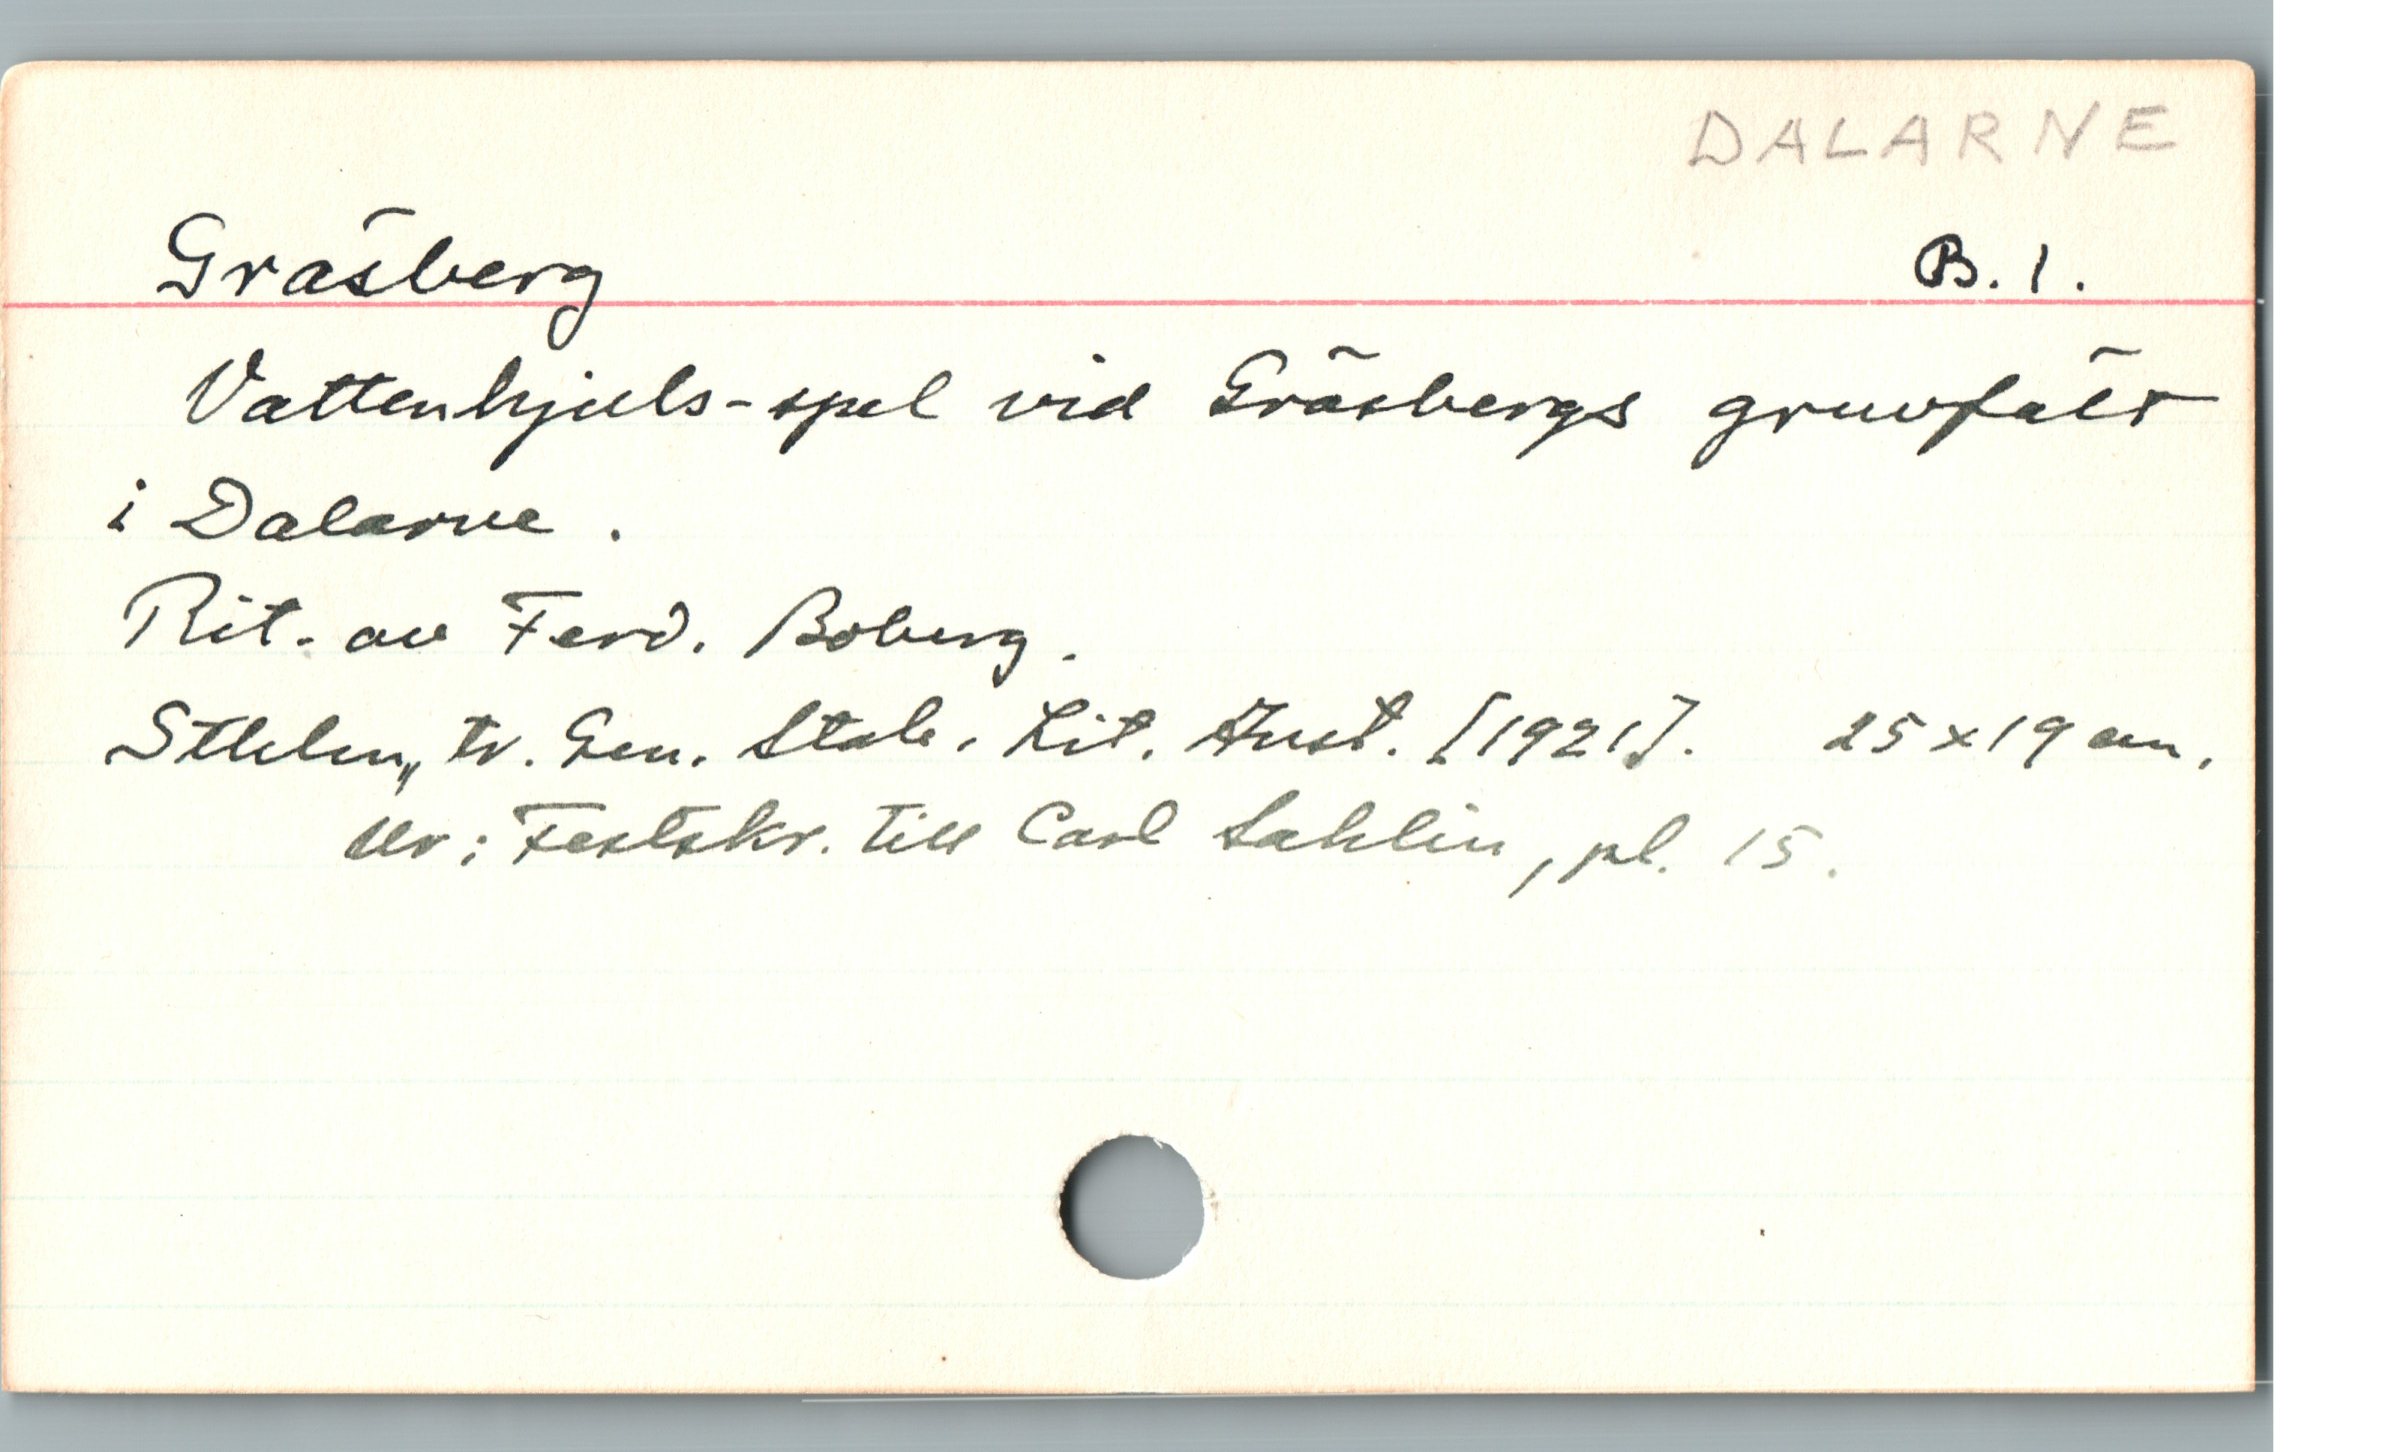 DALARNE
Gräsberg B. 1.
Vattenhjuls-spel vid Gräsbergs gruvfält
i Dalarne.
Rit. av Ferd. Boberg.
Sthlm, tr. Gen. Stab. Lit. Anst. [1921]. 25 x 19 cm.
Ur: Festskr. till Carl Sahlin, pl. 15.